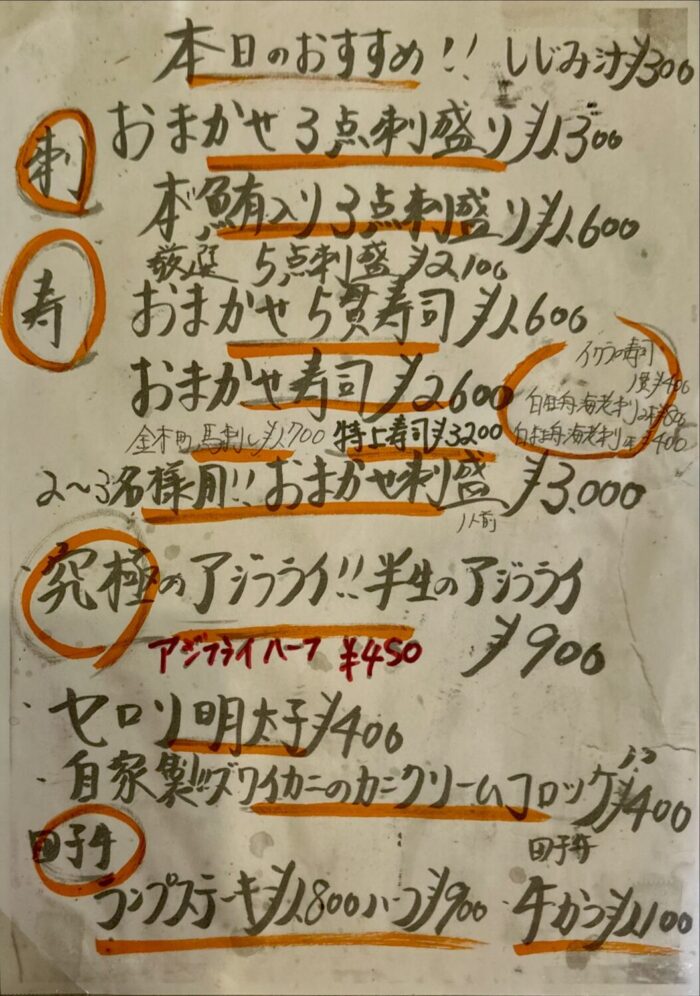 本日のおすすめ!! しじみ汁¥300
刺 おまかせ3点刺盛り¥1.300
本鮪入り3点刺盛り¥1.600
厳選 5点刺盛¥2,100
寿 おまかせ5貫寿司¥1.600
おまかせ寿司¥2600
イクラの寿司
1貫¥400
海老刺し2本¥800
海老刺し1本¥400
馬刺し¥1.700 特上寿司¥3200
2〜3名様用!!おまかせ刺盛 ¥3.000
1人前
究極のアジフライ!!半生のアジフライ
アジフライハーフ ¥450 ¥900
セロリ明太子¥400
自家製!!ズワイカニのカニクリームコロッケ¥400
田子牛 田子牛
ランプステーキ¥1.800ハーフ¥900 牛かつ¥1.100